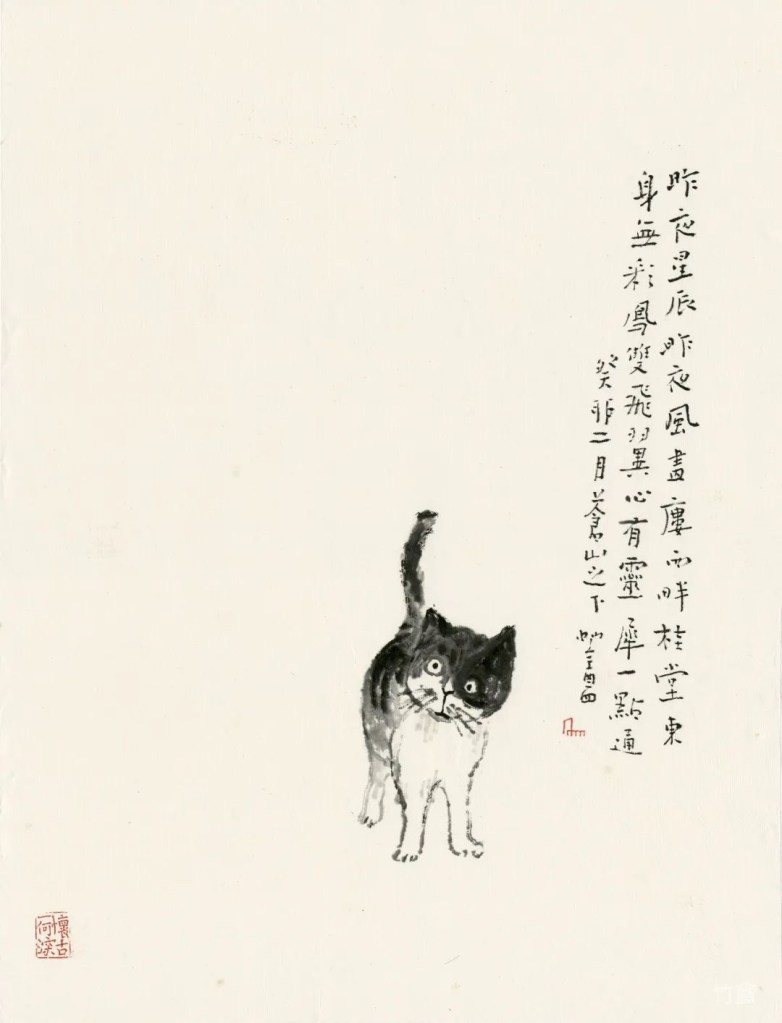 昨夜星辰昨夜風畫廔西畔桂堂東
身無彩鳳雙飛羽異心有靈犀一點通
癸卯二月蒼山之下
懷古何深